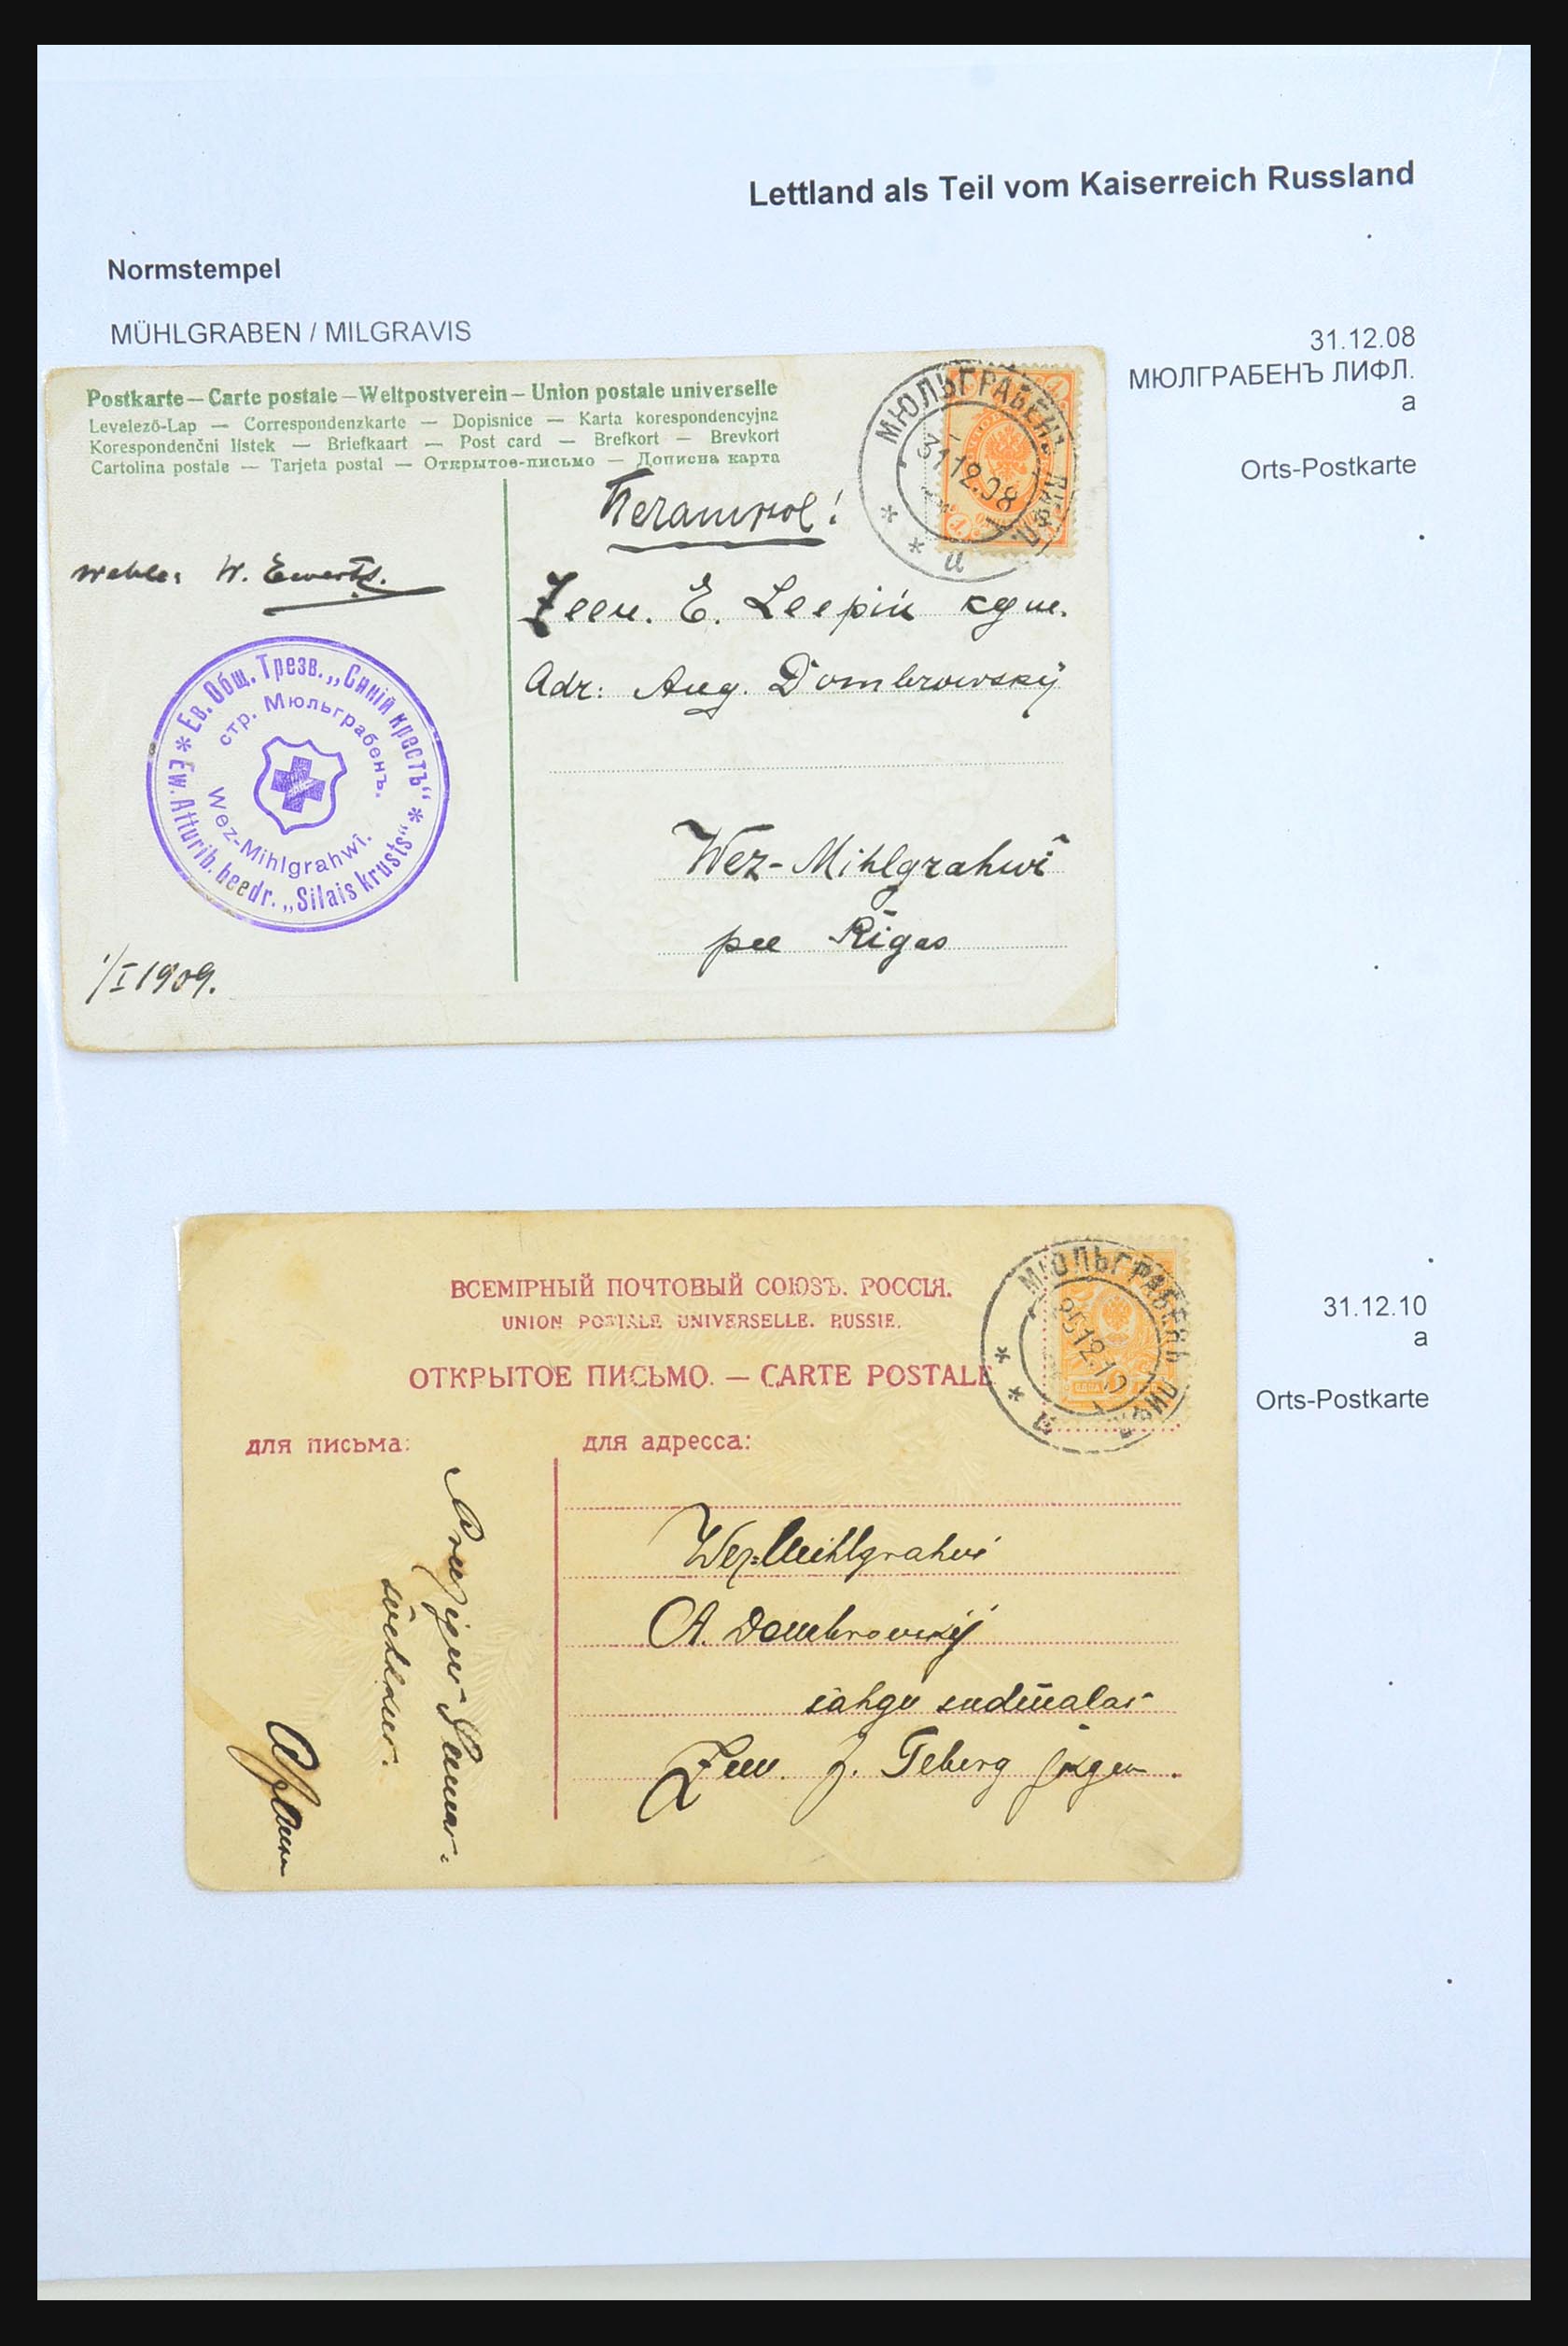 Lettland als Teil vom Kaiserreich Russland
Normstempel
MÜHLGRABEN / MILGRAVIS
31.12.08
МЮЛГРАБЕНЪ ЛИФЛ.
а
Orts-Postkarte
Postkarte — Carte postale — Weltpostverein — Union postale universelle
Levelező-Lap — Correspondenzkarte — Dopisnice — Karta korespondencyjna
Korespondenčni listek — Briefkaart — Post card — Brefkort — Brevkort
Cartolina postale — Tarjeta postal — Открытое-письмо — Дописна карта
МЮЛЬГРАБЕНЪ ЛИФЛ.
31 12.08
* * а
W. Ewerts.
E. Leepiń
Adr: Aug. Dombrowsky
Wez-Mihlgrahwī
pee Rīgas
Ев. Общ. Трезв. „Синій крестъ“
стр. Мюльграбенъ.
Wez-Mihlgrahwī.
* Ew. Atturib. beedr. „Silais krusts“ *
1/I 1909.
31.12.10
а
Orts-Postkarte
ВСЕМІРНЫЙ ПОЧТОВЫЙ СОЮЗЪ. РОССІЯ.
UNION POSTALE UNIVERSELLE. RUSSIE.
ОТКРЫТОЕ ПИСЬМО. — CARTE POSTALE
МЮЛЬГРАБЕНЪ ЛИФЛ.
12.10
* * а
для письма:
для адресса:
Wez-Mihlgrahwi
A. Dombrowskij
sahgu sudmalas
J. Teberg